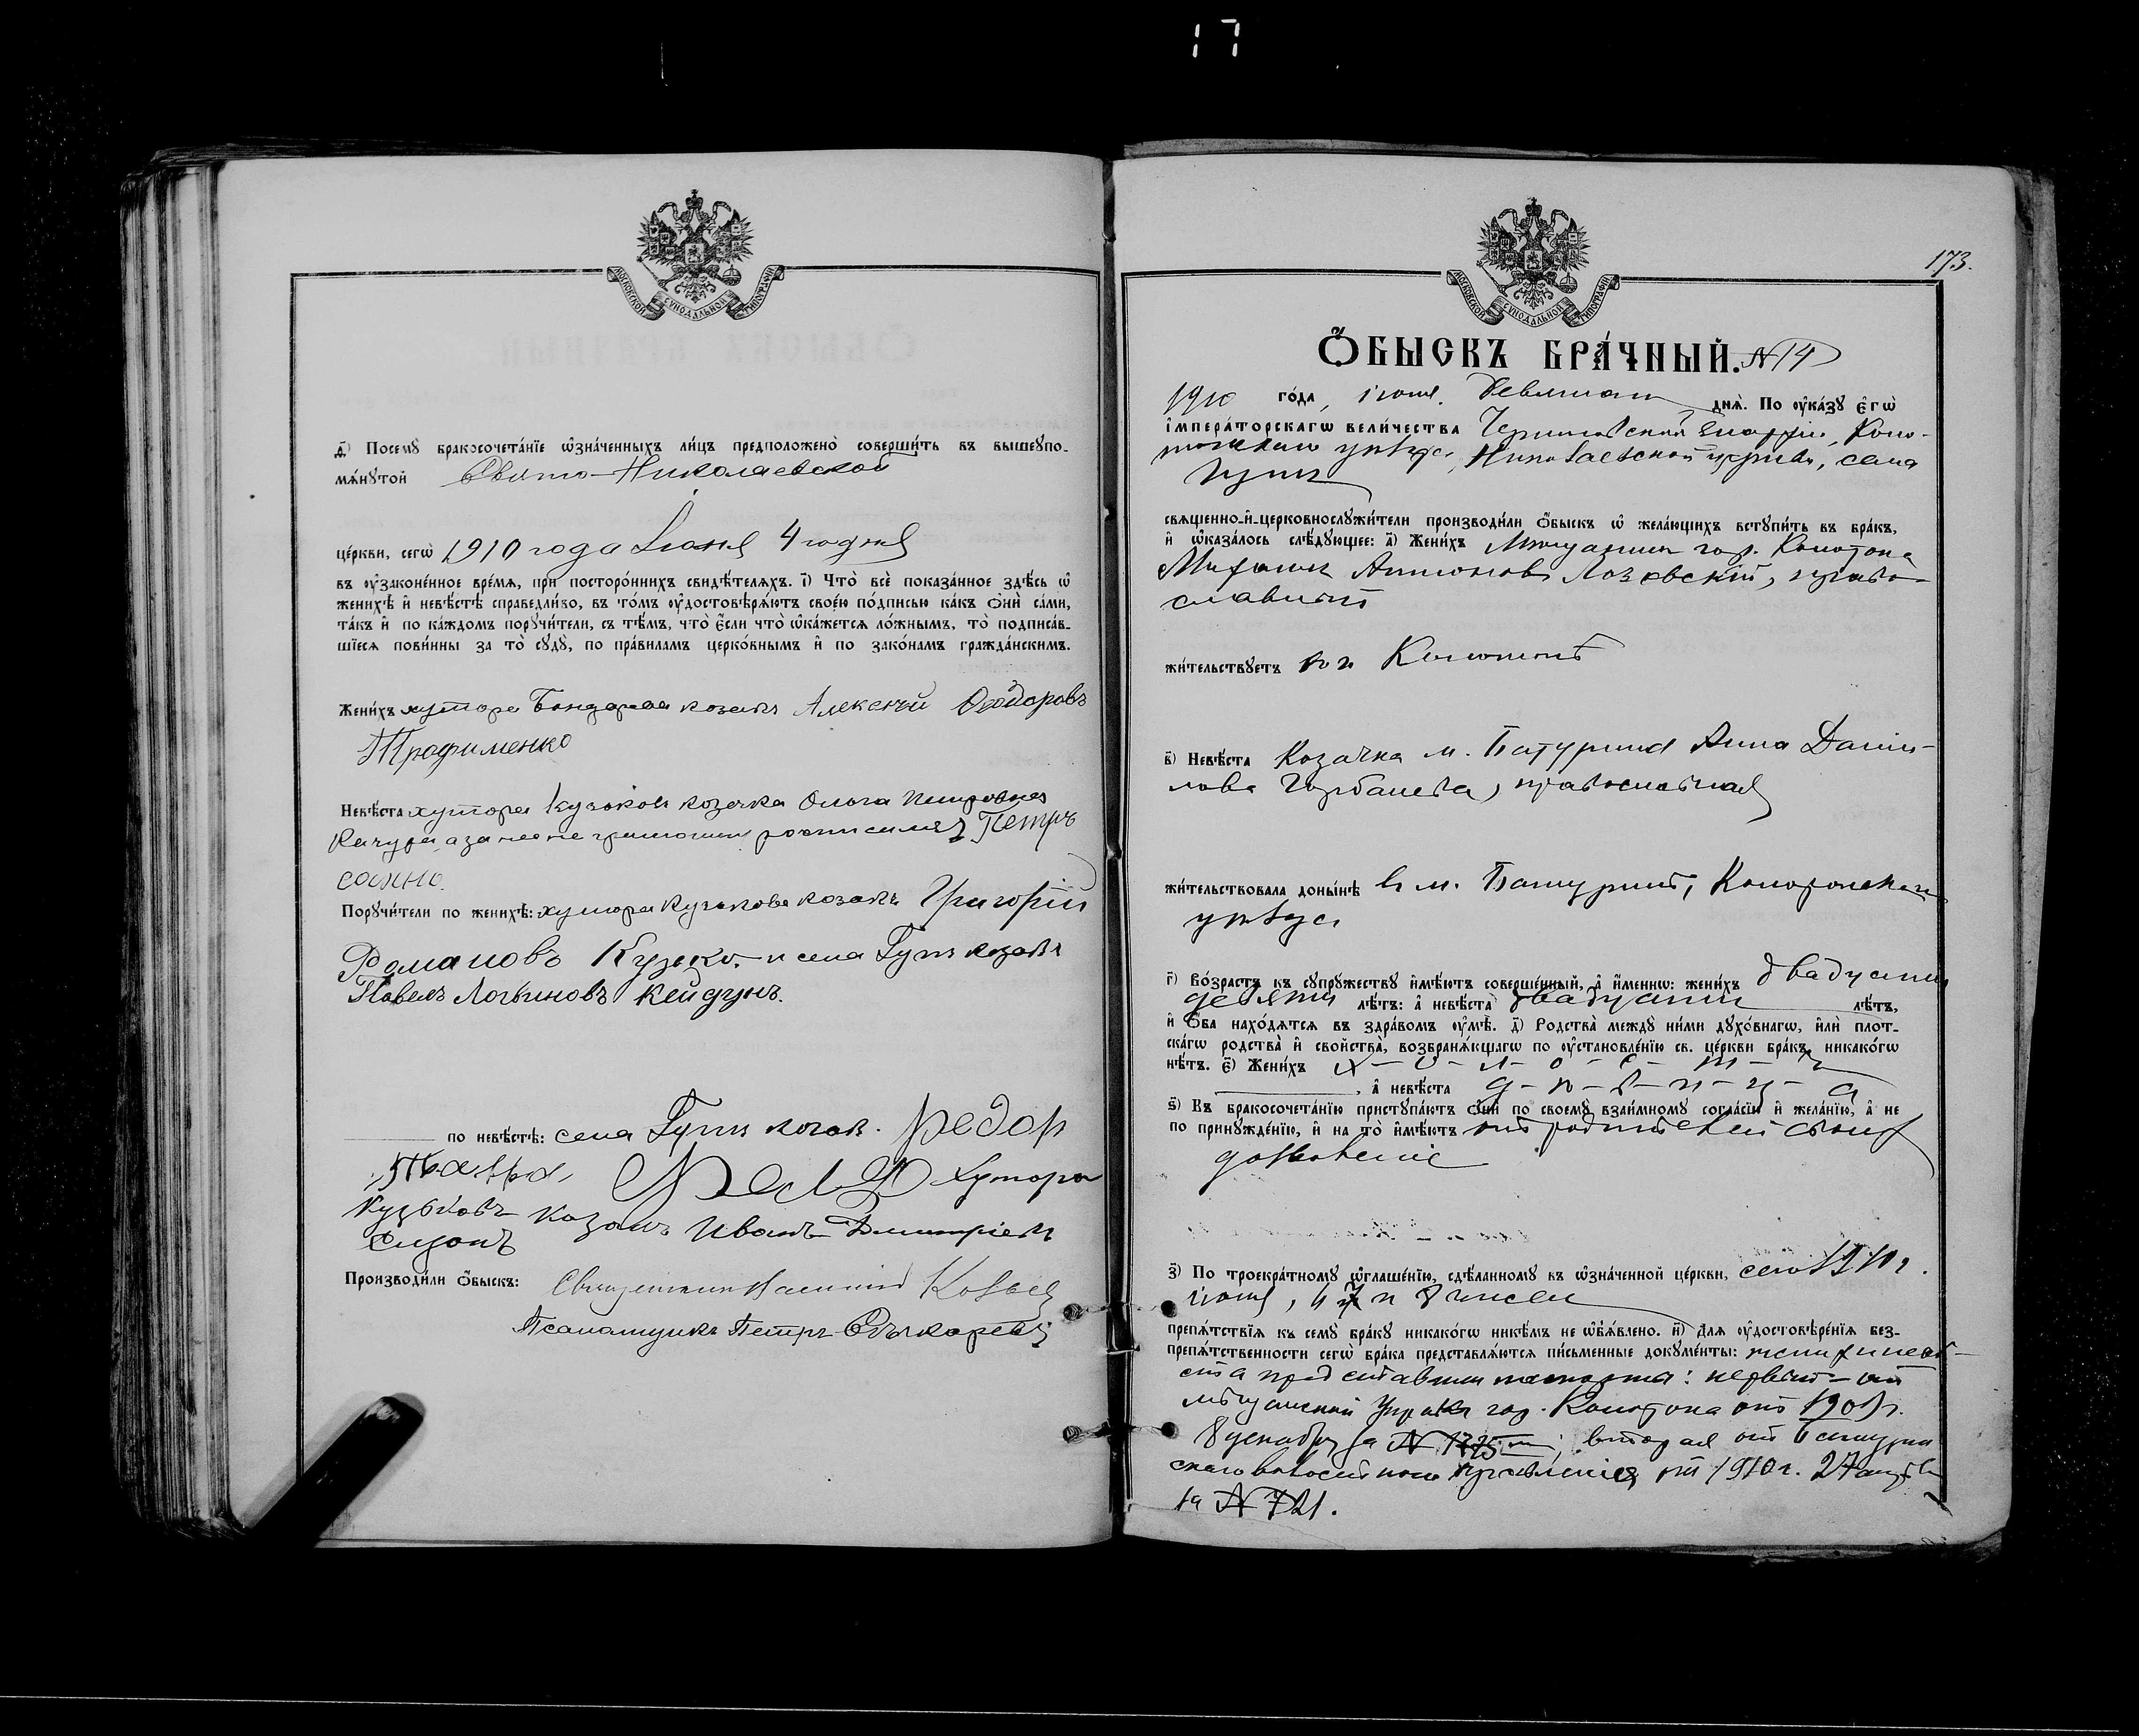 17
МОСКОВСКОЙ СѴНОДАЛЬНОЙ ТИПОГРАФІИ
д҃) Посемꙋ бракосочета́нїе ѡ҆зна́ченныхъ ли́цъ предположено̀ соверши́ть въ вышеꙋпо-
мѧ́нꙋтой Свято-Николаевской
це́ркви, сегѡ̀ 1910 года Іюня 4 го дня
въ ᲂу҆зако́ненное вре́мѧ, при посторо́ннихъ свидѣ́телѧхъ. і҃) Что̀ всѐ пока́занное здѣ́сь ѡ҆
женихѣ̀ и҆ невѣ́стѣ справедли́во, въ то́мъ ᲂу҆достовѣрѧ́ютъ свое́ю по́дписью ка́къ ѻ҆нѝ са́ми,
та́къ и҆ по ка́ждомъ порꙋчи́тели, съ тѣ́мъ, что̀ є҆́сли что̀ ѡ҆ка́жетсѧ ло́жнымъ, то̀ подписа́в-
шїесѧ пови́нны за то̀ сꙋдꙋ̀, по пра́виламъ церко́внымъ и҆ по зако́намъ гражда́нскимъ.
Жени́хъ хутора Бондарева козакъ Алексѣй Ѳеодоровъ
Трофименко
Невѣ́ста хутора Кузьковъ козачка Ольга Петровна
Качура, а за нее не грамотную росписался Петръ
Порꙋчи́тели по женихѣ̀: хутора Кузькова козакъ Григорій
Романовъ Кузько и села Гутъ козакъ
Павелъ Логвиновъ Кейдунъ.
по невѣ́стѣ: села Гутъ козак. Федор
хутора
Кузьковъ козакъ Иванъ Дмитріевъ
Производи́ли ѻ҆́быскъ: Священникъ
Псаломщикъ Петръ
173.
МОСКОВСКОЙ СѴНОДАЛЬНОЙ ТИПОГРАФІИ
Ѻ҆́БЫСКЪ БРА́ЧНЫЙ. № 14
1910 го́да, іюня девятаго днѧ̀. По ᲂу҆ка́зꙋ є҆гѡ̀
і҆мпера́торскагѡ вели́чества Черниговской епархіи, Коно-
топскаго уѣзда, Николаевской церкви, села
Гутъ
свѧще́нно-и҆-церковнослꙋжи́тели производи́ли ѻ҆́быскъ ѡ҆ жела́ющихъ встꙋпи́ть въ бра́къ,
и҆ ѡ҆каза́лось слѣ́дꙋющее: а҃) Жени́хъ Мѣщанинъ гор. Конотопа
Михаилъ Антоновъ Лозовскій, право-
славный
жи́тельствꙋетъ въ г. Конотопѣ
в҃) Невѣ́ста Козачка м. Батурина Анна Дани-
лова Горбанева, православная
жи́тельствовала доны́нѣ въ м. Батуринѣ, Конотопскаго
уѣзда
г҃) Во́зрастъ къ сꙋпрꙋ́жествꙋ и҆мѣ́ютъ соверше́нный, а҆ и҆́меннѡ: жени́хъ двадцати
девяти лѣ́тъ: а҆ невѣ́ста двадцати лѣ́тъ,
и҆ ѻ҆́ба нахо́дѧтсѧ въ здра́вомъ ᲂу҆мѣ̀. д҃) Родства̀ междꙋ̀ ни́ми дꙋхо́внагѡ, и҆лѝ плот-
ска́гѡ родства̀ и҆ свойства̀, возбранѧ́ющагѡ по ᲂу҆становле́нїю св. це́ркви бра́къ, никако́гѡ
нѣ́тъ. є҃) Жени́хъ х-о-л-о-с-т-ъ
, а҆ невѣ́ста д-ѣ-в-и-ц-а
ѕ҃) Къ бракосочета́нїю пристꙋпа́ютъ ѻ҆нѝ по своемꙋ̀ взаи́мномꙋ согла́сїю и҆ жела́нїю, а҆ не
по принꙋжде́нїю, и҆ на то̀ и҆мѣ́ютъ отъ родителей своихъ
дозволеніе
з҃) По троекра́тномꙋ ѡ҆глаше́нїю, сдѣ́ланномꙋ въ ѡ҆зна́ченной це́ркви, сего 1910 г.
іюня, 6, 7 и 8 чиселъ
препѧ́тствїѧ къ семꙋ̀ бра́кꙋ никако́гѡ никѣ́мъ не ѡ҆б̾ѧ́влено. и҃) Длѧ ᲂу҆достовѣре́нїѧ без-
препѧ́тственности сегѡ̀ бра́ка представлѧ́ютсѧ пи́сьменные докꙋме́нты: женихъ и невѣ-
ста представили паспорты: первый - отъ
мѣщанской Управы гор. Конотопа отъ 1909 г.
8 декабря за № 1725; вторая отъ Батурин
скаго волостнаго правленія отъ 1910 г. 27 апрѣля
за № 721.